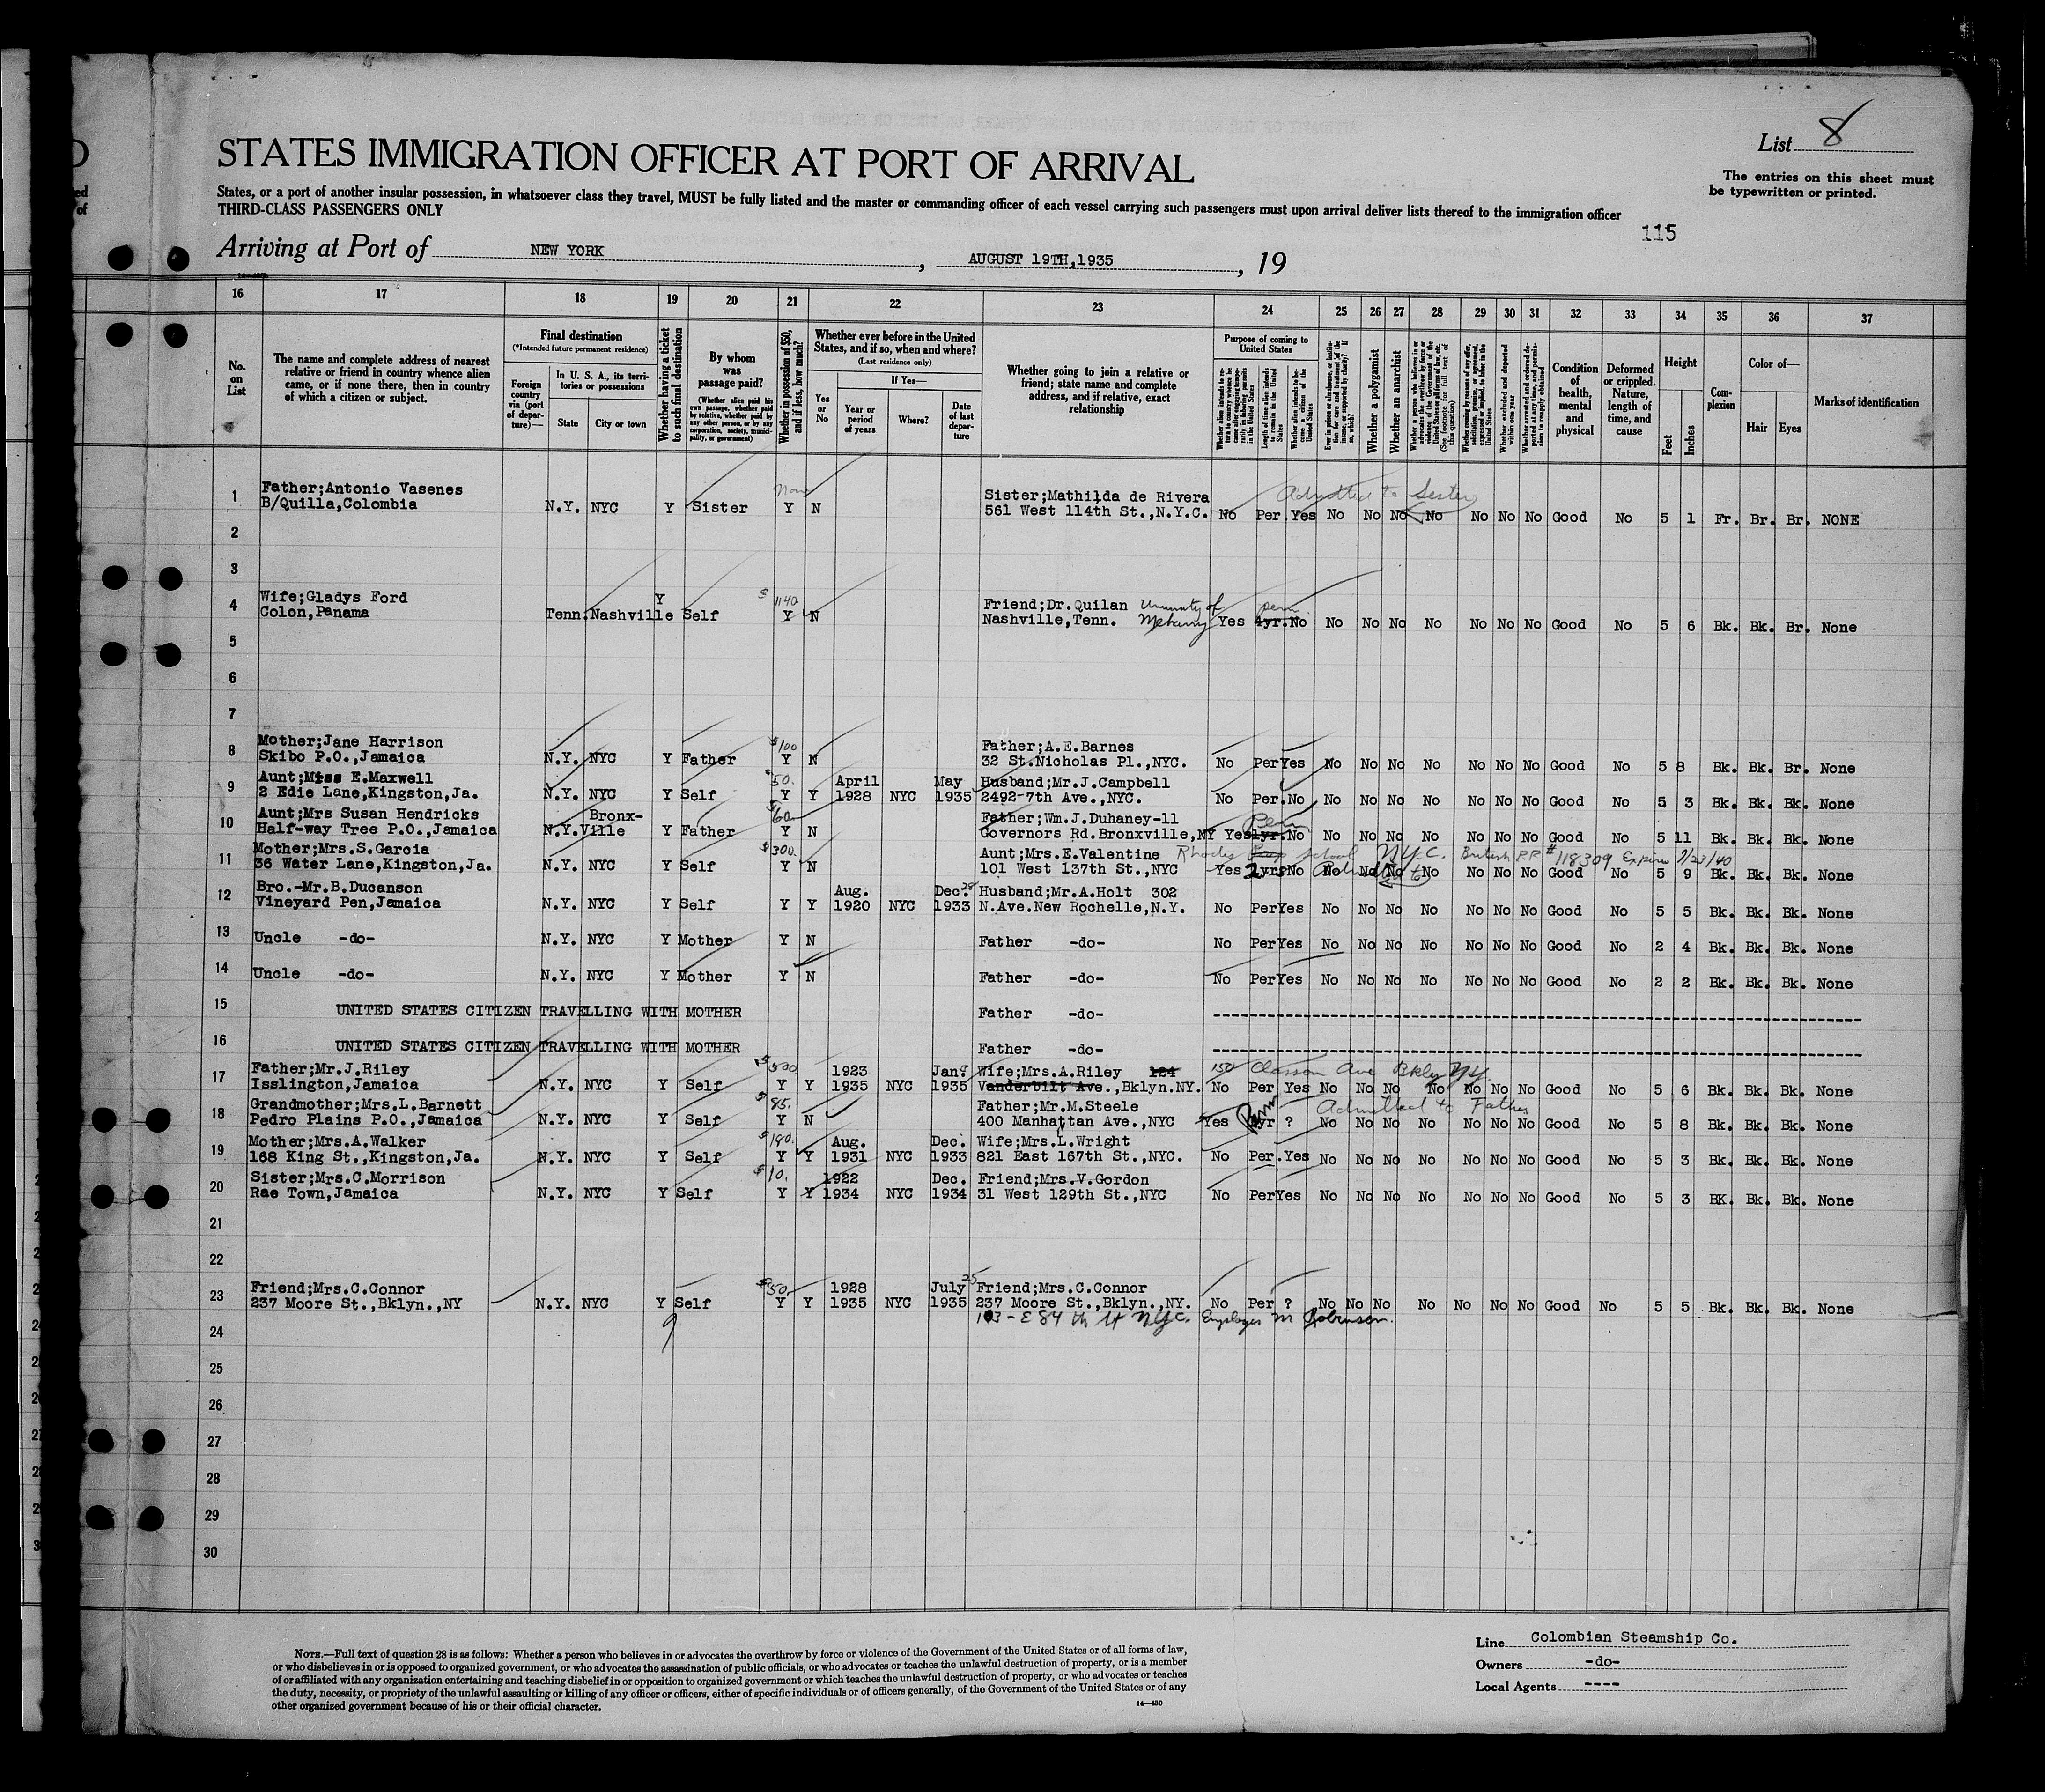 List 8
STATES IMMIGRATION OFFICER AT PORT OF ARRIVAL
The entries on this sheet must
be typewritten or printed.
States, or a port of another insular possession, in whatsoever class they travel, MUST be fully listed and the master or commanding officer of each vessel carrying such passengers must upon arrival deliver lists thereof to the immigration officer
THIRD-CLASS PASSENGERS ONLY
115
Arriving at Port of NEW YORK, AUGUST 19TH,1935, 19
16 17 18 19 20 21 22 23 24 25 26 27 28 29 30 31 32 33 34 35 36 37
No. on List
The name and complete address of nearest relative or friend in country whence alien came, or if none there, then in country of which a citizen or subject.
Final destination
(*Intended future permanent residence)
Foreign country via (port of departure)—
In U. S. A., its territories or possessions
State City or town
Whether having a ticket to such final destination
By whom was passage paid?
(Whether alien paid his own passage, whether paid by relative, whether paid by any other person, or by any corporation, society, municipality, or government)
Whether in possession of $50, and if less, how much?
Whether ever before in the United States, and if so, when and where?
(Last residence only)
Yes or No
If Yes—
Year or period of years Where? Date of last departure
Whether going to join a relative or friend; state name and complete address, and if relative, exact relationship
Purpose of coming to United States
Whether a polygamist
Whether an anarchist
Condition of health, mental and physical
Deformed or crippled. Nature, length of time, and cause
Height
Feet Inches
Complexion
Color of—
Hair Eyes
Marks of identification
1 Father;Antonio Vasenes Sister;Mathilda de Rivera Admitted to Sister
B/Quilla,Colombia N.Y. NYC Y Sister Y N 561 West 114th St.,N.Y.C. No Per. Yes No No No No No No No Good No 5 1 Fr. Br. Br. NONE
2
3
4 Wife;Gladys Ford Y $ 1140 Friend;Dr.Quilan University of perm
Colon,Panama Tenn. Nashville Self Y N Nashville,Tenn. Meharry Yes 4yr. No No No No No No No No Good No 5 6 Bk. Bk. Br. None
5
6
7
8 Mother;Jane Harrison $100 Father;A.E.Barnes
Skibo P.O.,Jamaica N.Y. NYC Y Father Y N 32 St.Nicholas Pl.,NYC. No Per Yes No No No No No No No Good No 5 8 Bk. Bk. Br. None
9 Aunt;Miss E.Maxwell 50. April May Husband;Mr.J.Campbell
2 Edie Lane,Kingston,Ja. N.Y. NYC Y Self Y Y 1928 NYC 1935 2492-7th Ave.,NYC. No Per. No No No No No No No No Good No 5 3 Bk. Bk. Bk. None
10 Aunt;Mrs Susan Hendricks Bronx- 60 Father;Wm.J.Duhaney-11 Perm
Half-way Tree P.O.,Jamaica N.Y. Ville Y Father Y N Governors Rd.Bronxville,NY Yes 1yr. No No No No No No No No Good No 5 11 Bk. Bk. Bk. None
11 Mother;Mrs.S.Garcia $300. Aunt;Mrs.E.Valentine Rhodes Prep School N.Y.C. British P.P.# 118309 Expires 7/23/40
36 Water Lane,Kingston,Ja. N.Y. NYC Y Self Y N 101 West 137th St.,NYC Yes 2yrs No No No No No No No No Good No 5 9 Bk. Bk. Bk. None
12 Bro.-Mr.B.Ducanson Aug. Dec. Husband;Mr.A.Holt 302
Vineyard Pen,Jamaica N.Y. NYC Y Self Y Y 1920 NYC 1933 N.Ave.New Rochelle,N.Y. No Per Yes No No No No No No No Good No 5 5 Bk. Bk. Bk. None
13 Uncle -do- N.Y. NYC Y Mother Y N Father -do- No Per Yes No No No No No No No Good No 2 4 Bk. Bk. Bk. None
14 Uncle -do- N.Y. NYC Y Mother Y N Father -do- No Per Yes No No No No No No No Good No 2 2 Bk. Bk. Bk. None
15 UNITED STATES CITIZEN TRAVELLING WITH MOTHER Father -do-
16 UNITED STATES CITIZEN TRAVELLING WITH MOTHER Father -do-
17 Father;Mr.J.Riley $500 1923 Jan. Wife;Mrs.A.Riley 124 150 Classon Ave Bklyn N.Y.
Isslington,Jamaica N.Y. NYC Y Self Y Y 1935 NYC 1935 Vanderbilt Ave.,Bklyn.NY. No Per Yes No No No No No No No Good No 5 6 Bk. Bk. Bk. None
18 Grandmother;Mrs.L.Barnett $ 85. Father;Mr.M.Steele Perm Admitted to Father
Pedro Plains P.O.,Jamaica N.Y. NYC Y Self Y N 400 Manhattan Ave.,NYC Yes yr ? No No No No No No No Good No 5 8 Bk. Bk. Bk. None
19 Mother;Mrs.A.Walker $ 180. Aug. Dec. Wife;Mrs.L.Wright
168 King St.,Kingston,Ja. N.Y. NYC Y Self Y Y 1931 NYC 1933 821 East 167th St.,NYC. No Per. Yes No No No No No No No Good No 5 3 Bk. Bk. Bk. None
20 Sister;Mrs.C.Morrison $ 10. 1922 Dec. Friend;Mrs.V.Gordon
Rae Town,Jamaica N.Y. NYC Y Self Y Y 1934 NYC 1934 31 West 129th St.,NYC No Per Yes No No No No No No No Good No 5 3 BK. Bk. Bk. None
21
22
23 Friend;Mrs.C.Connor $50. 1928 July 25 Friend;Mrs.C.Connor
237 Moore St.,Bklyn.,NY N.Y. NYC Y Self Y Y 1935 NYC 1935 237 Moore St.,Bklyn.,NY. No Per ? No No No No No No No Good No 5 5 Bk. Bk. Bk. None
103 - E 84 th St N.Y.C. Employer M Robinson.
24 9
25
26
27
28
29
30
NOTE.—Full text of question 28 is as follows: Whether a person who believes in or advocates the overthrow by force or violence of the Government of the United States or of all forms of law,
or who disbelieves in or is opposed to organized government, or who advocates the assassination of public officials, or who advocates or teaches the unlawful destruction of property, or is a member
of or affiliated with any organization entertaining and teaching disbelief in or opposition to organized government or which teaches the unlawful destruction of property, or who advocates or teaches
the duty, necessity, or propriety of the unlawful assaulting or killing of any officer or officers, either of specific individuals or of officers generally, of the Government of the United States or of any
other organized government because of his or their official character.
14—430
Line Colombian Steamship Co.
Owners -do-
Local Agents ----